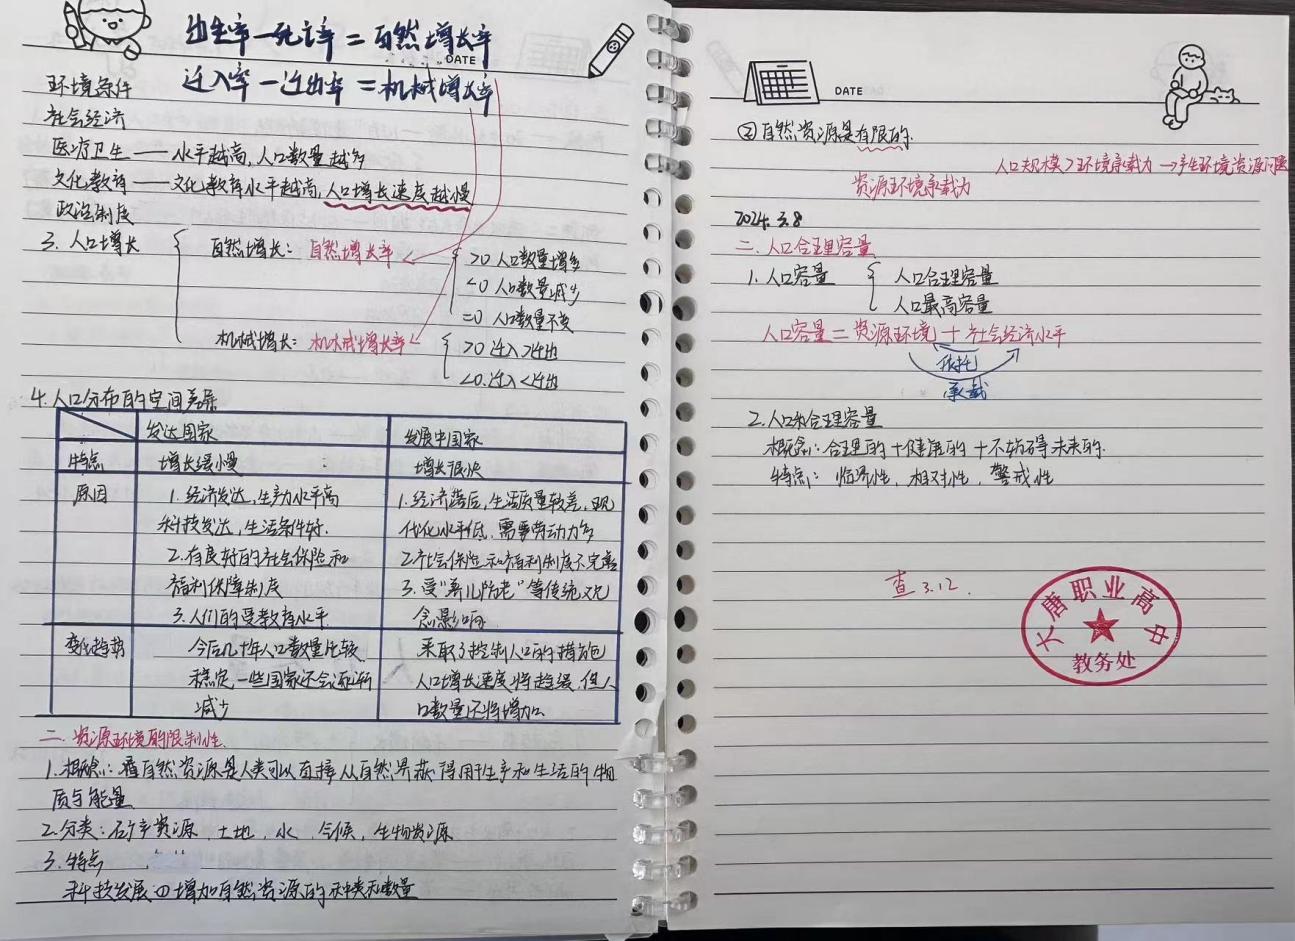 出生率-死亡率=自然增长率
DATE
迁入率-迁出率=机械增长率
环境条件
社会经济
医疗卫生——水平越高,人口数量越多
文化教育——文化教育水平越高,人口增长速度越慢
政治制度
3.人口增长
自然增长:自然增长率
>0 人口数量增多
<0 人口数量减少
=0 人口数量不变
机械增长:机械增长率
>0 迁入>迁出
<0.迁入<迁出
4.人口分布的空间差异
发达国家 发展中国家
特点 增长缓慢 增长很快
原因
1.经济发达,生产力水平高
科技发达,生活条件好.
2.有良好的社会保险和
福利保障制度
3.人们的受教育水平
1.经济落后,生活质量较差,现
代化水平低,需要劳动力多
2.社会保险和福利制度不完善
3.受“养儿防老”等传统观
念影响
变化趋势
今后几十年人口数量比较
稳定,一些国家还会逐渐
减少
采取了控制人口的措施
人口增长速度将趋缓,但人
口数量还将增加
二.资源环境的限制性
1.概念:自然资源是人类可以直接从自然界获得用于生产和生活的物
质与能量
2.分类:矿产资源,土地,水,气候,生物资源
3.特点
科技发展①增加自然资源的种类和数量
DATE
②自然资源是有限的.
人口规模>环境承载力→产生环境资源问题
资源环境承载力
2024.3.8
二.人口合理容量
1.人口容量
人口合理容量
人口最高容量
人口容量=资源环境+社会经济水平
依托
承载
2.人口合理容量
概念:合理的+健康的+不妨碍未来的.
特点:临界性,相对性,警戒性
查3.12.
大唐职业高中
教务处